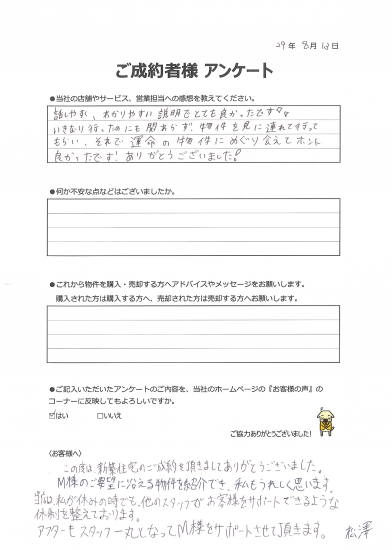 29年 8月 13日
ご成約者様 アンケート
●当社の店舗やサービス、営業担当への感想を教えてください。
話しやすく、わかりやすい説明でとても良かったです
いきなり行ったのにも関わらず、物件を見に連れて行って
もらい、それで運命の物件にめぐり会えてホント
良かったです！ありがとうございました！
●何か不安な点などはございましたか。
●これから物件を購入・売却する方へアドバイスやメッセージをお願いします。
購入された方は購入する方へ、売却された方は売却する方へお願いします。
●ご記入いただいたアンケートのご内容を、当社のホームページの『お客様の声』の
コーナーに反映してもよろしいですか。
☑はい □いいえ
ご協力ありがとうございました!
〈お客様へ〉
この度は、新築住宅のご成約を頂きましてありがとうございました。
M様のご要望に沿える物件を紹介でき、私もうれしく思います。
当社は、私が休みの時でも、他のスタッフがお客様をサポートできるような
体制を整えております。
アフターもスタッフ一丸となってM様をサポートさせて頂きます。 松澤